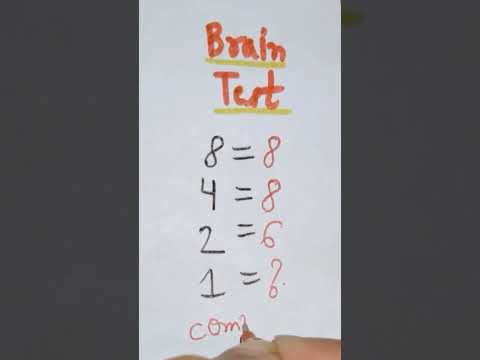 Brain
Test
8 = 8
4 = 8
2 = 6
1 = ?
com